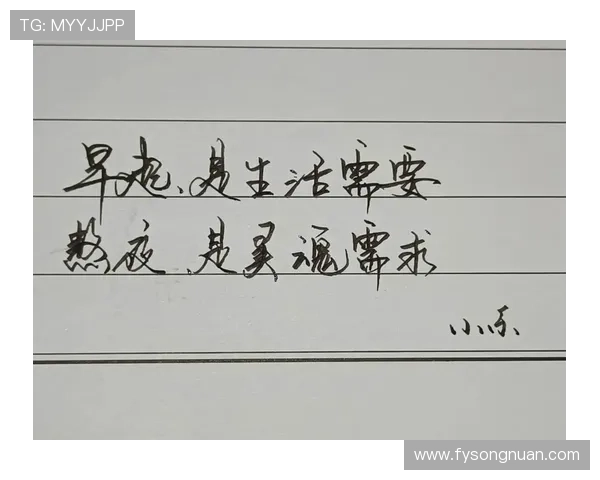 TG: MYYJJPP
早起、是生活需要
熬夜、是灵魂需求
小乐
www.fysongnuan.com